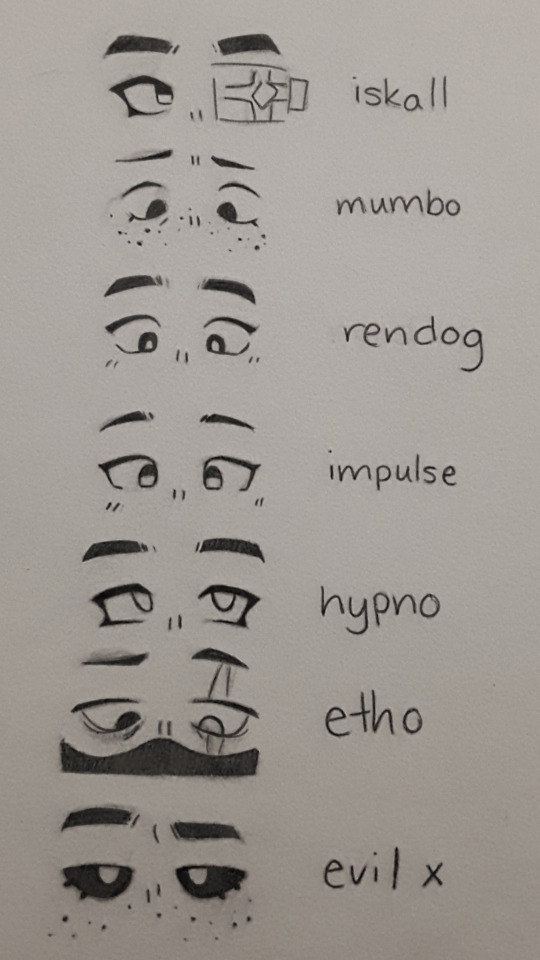 iskall
mumbo
rendog
impulse
hypno
etho
evil x